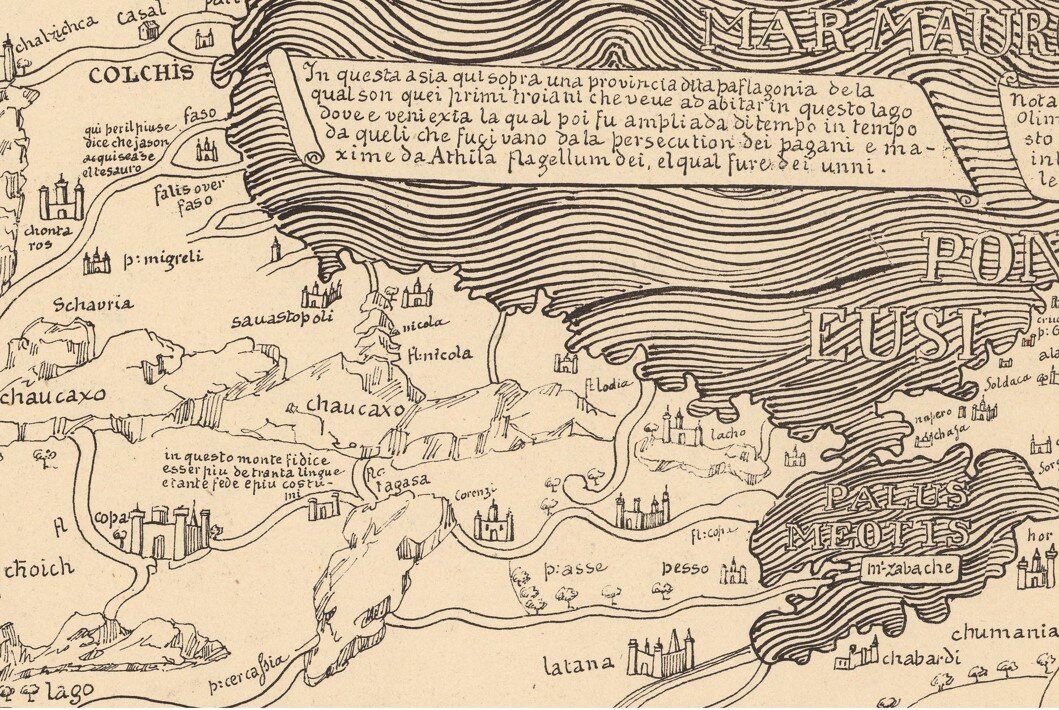 chalzichca
casal
COLCHIS
MAR MAUR
In questa asia qui sopra una provincia dita paflagonia dela
qual son quei primi troiani che veue ad abitar in questo lago
dove e veniexia la qual poi fu ampliada di tempo in tempo
da queli che fugivano da la persecution dei pagani e ma-
xime da Athila flagellum dei, el qual fure dei unni.
nota
olim
sto
int
le
faso
qui peril piu se
dice che jason
acquisease
el tesauro
falis over
faso
chonta
ros
p: migreli
PON
EUSI
Schauria
sauastopoli
nicola
fl: nicola
chaucaxo
chaucaxo
fl: lodia
Soldaca
ala
napero
chafa
lacho
in questo monte si dice
esser piu de tranta lingue
e tante fede e piu costu-
mi
fl:
tagasa
Corenzi
PALUS
MEOTIS
mr zabache
fl
copa
fl: copa
hor
choich
p: asse
pesso
chumania
latana
chabardi
p: cercassia
lago